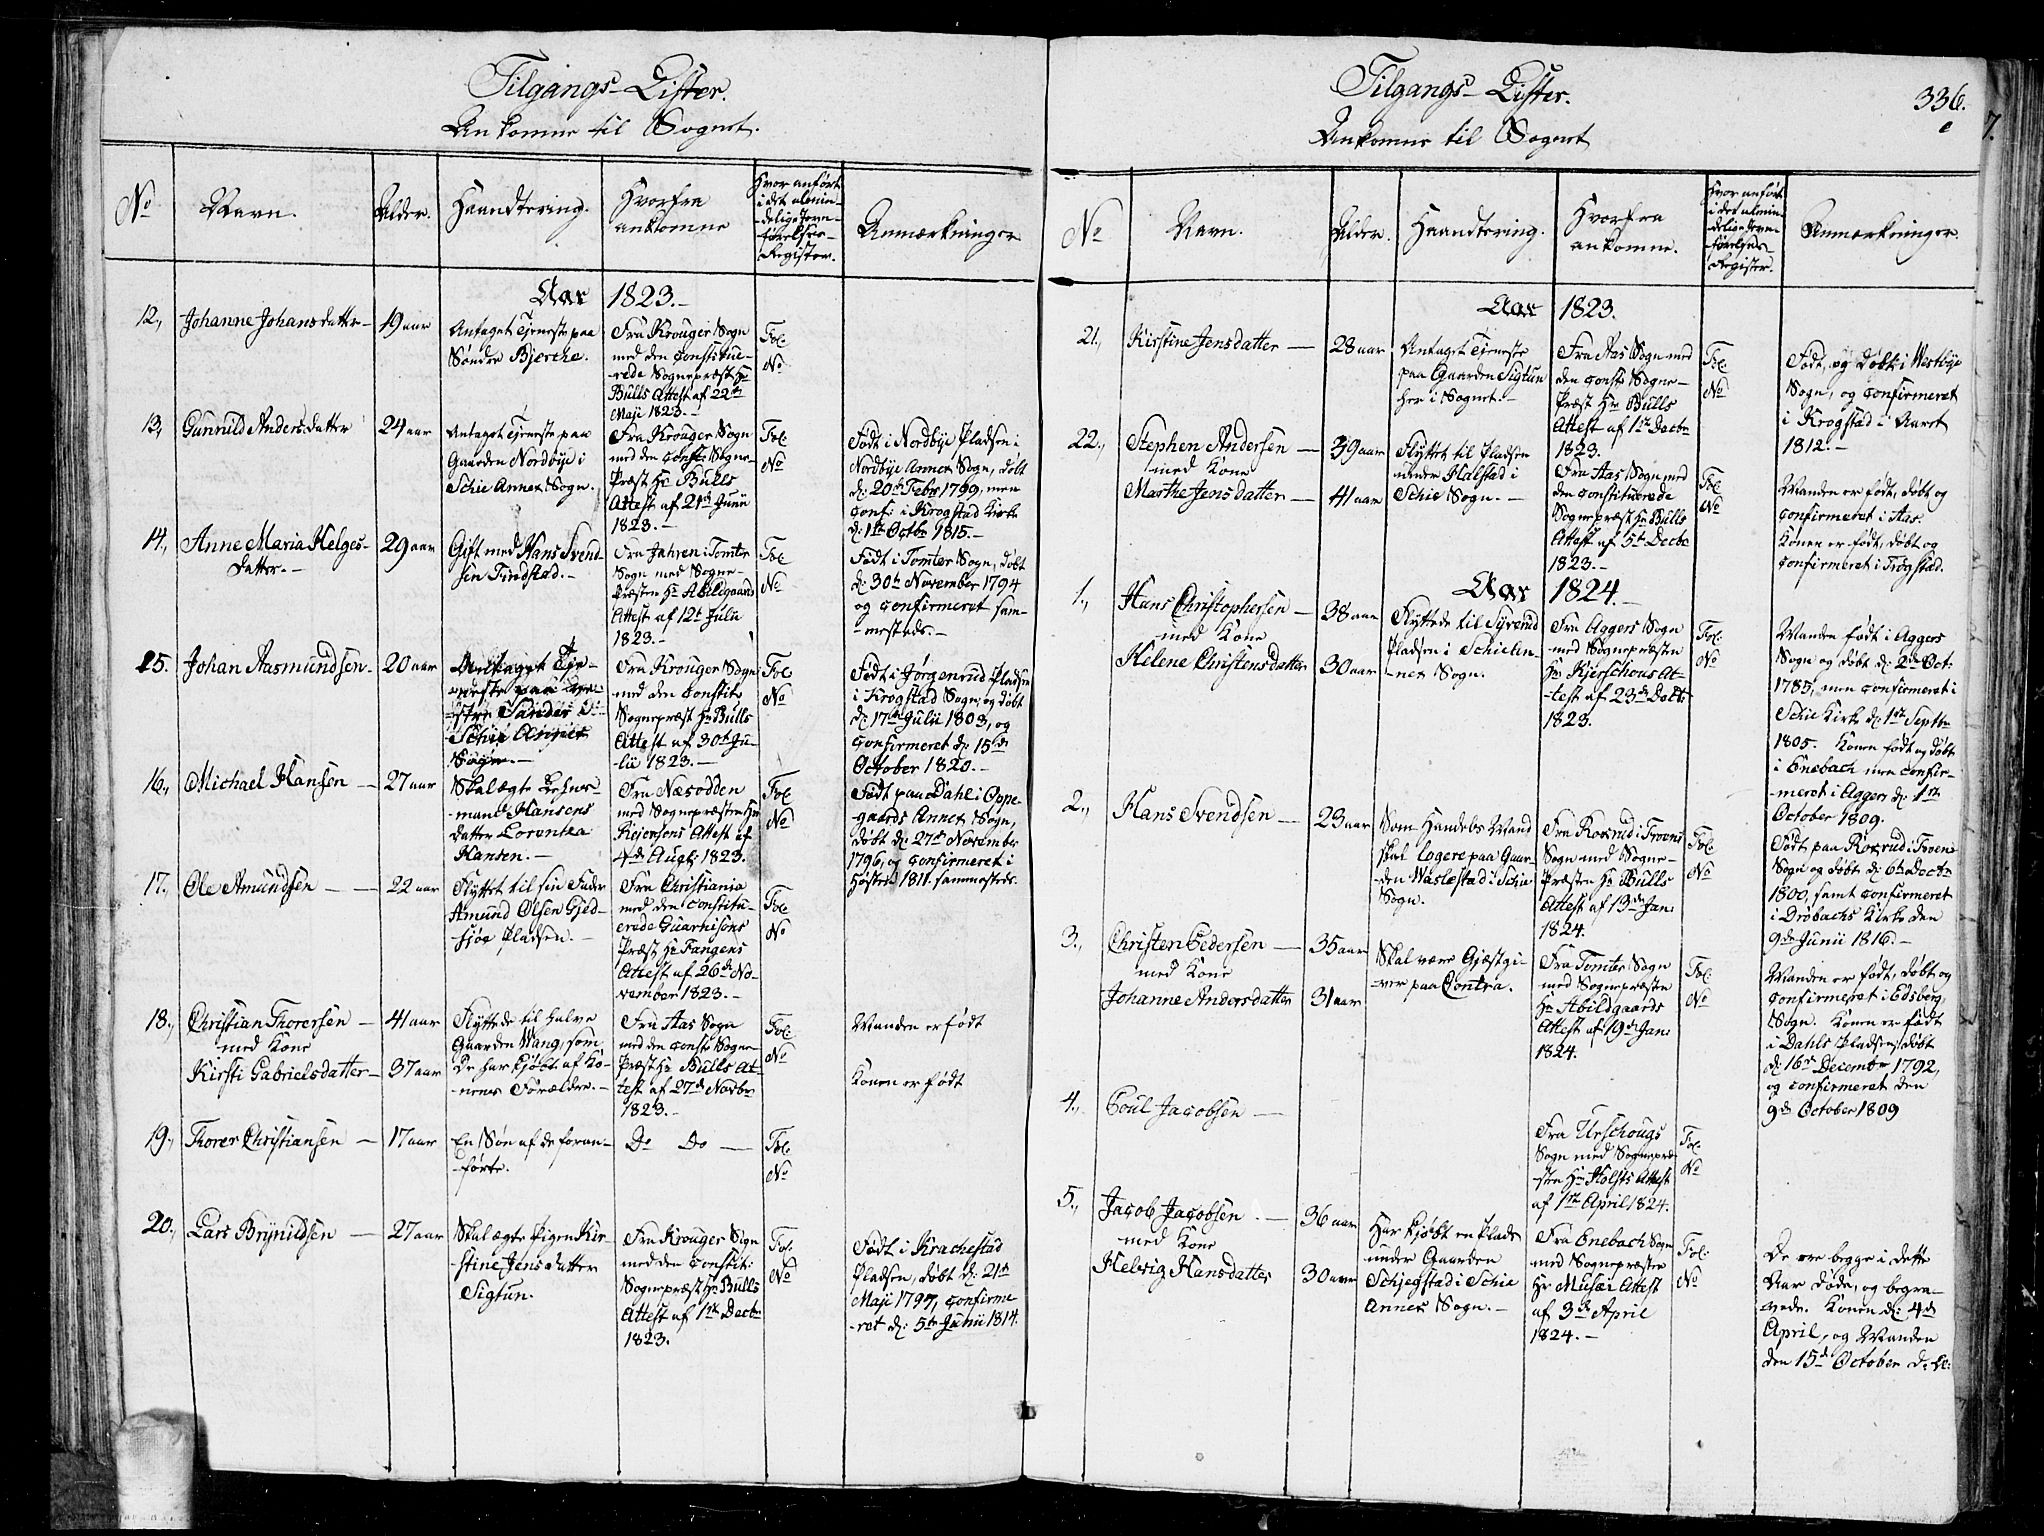 Tilgangs-Lister.
Ankomne til Sognet.
No
Navn.
Alder.
Haandtering.
Hvorfra
ankomne
Hvor anført
i det almin-
-delige Jevn-
-førelses-
Register.
Anmærkninger
Aar 1823.-
12., Johanne Johansdatter- 19 aar
Antaget Tjeneste paa
Sønder Bjercke.
Fra Krouger Sogn
med den Constitue-
-rede Sognepræst Hr
Bulls Attest af 22de
Maji 1823.-
Fol:
No
13., Gunnild Andersdatter 24 aar
Antaget Tjeneste paa
Gaarden Nordbye i
Schie Annex Sogn.
Fra Krouger Sogn
med den Const: Sogne-
Præst Hr Bulls
Attest af 21de Junii
1823.-
Fol:
No
Født i Nordbye Pladsen i
Nordbye Annex Sogn, døbt
d: 20de Febr 1799, men
Conf: i Krogstad Kirke
d: 1te Octbr 1815.-
14., Anne Maria Helges-
datter.- 29 aar
Gift med Hans Svend-
sen Findstad.-
Fra Jahren i Tomter
Sogn med Sogne-
Præsten Hr Abildgaards
Attest af 12te Julii
1823.-
Fol:
No
Født i Tomter Sogn, døbt
d: 30te November 1794
og Confirmeret sam-
-mesteds.-
15. Johan Aasmundsen- 20 aar
Antaget Tje-
neste paa
Sander i
Schie Annex
Sogn.-
Fra Krouger Sogn
med den Constit:
Sognepræst Hr Bulls
Attest af 30te Ju-
lii 1823.-
Fol:
No
Født i Jørgenrud Pladsen
i Krogstad Sogn, og døbt
d: 17de Julii 1803, og
Confirmeret d: 15de
October 1820.-
16., Michael Hansen - 27 aar
Skal ægte
Hansens
datter Lorentza
Hansen.-
Fra Næsodden
med Sognepræsten Hr
Rejersens Attest af
4de Augt: 1823.
Fol:
No
Født paa Dahl i Oppe-
-gaards Annex Sogn,
døbt d: 27de November
1796, og Confirmeret i
Høsten 1811 sammesteds.
17., Ole Amundsen - - 22 aar
Flyttet til sin Fader
Amund Olsen Gjed-
-sjøe Pladsen.-
Fra Christiania
med den Constitu-
erede Guarnisons
Præst Hr Fangens
Attest af 26de No-
vember 1823.-
Fol:
No
18., Christian Thorersen - 41 aar
med Kone
Kirsti Gabrielsdatter- 37 aar
Flyttede til halve
Gaarden Wang, som
De har kjøbt af Ko-
-nens Forældre.-
Fra Aas Sogn
med den Const: Sogne-
Præst Hr Bulls At-
test af 27de Novbr
1823.-
Fol:
No
Manden er født
Konen er født
19., Thorer Christiansen - 17 aar
En Søn af de foran-
-førte.
Do Do -
Fol:
No
20., Lars Brynildsen - 27 aar
Skal ægte Pigen Kir-
-stine Jensdatter
Sigtun.
Fra Krouger Sogn
med den Constit:
Sognepræst Hr Bulls
Attest af 1te Decbr
1823.
Fol:
No
Født i Krachestad
Pladsen, døbt d: 21de
Maji 1797, Confirme-
-ret d: 5te Junii 1814.
Tilgangs-Lister.
Ankomne til Sognet
336.
7.
No
Navn.
Alder.
Haandtering.
Hvorfra
ankomne.
Hvor anført
i det almin-
delige Jevn-
førelses
Register.
Anmærkninger.
Aar 1823.
21., Kirstine Jensdatter - 28 aar
Antaget Tjeneste
paa Gaarden Sigtun
her i Sognet.-
Fra Aas Sogn med
den Const: Sogne-
Præst Hr Bulls
Attest af 1te Decbr
1823.
Fol:
No
Født, og døbt i Westbye
Sogn, og Confirmeret
i Krogstad i Aaret
1812.-
22., Stephen Andersen - 39 aar
med Kone
Marthe Jensdatter - 41 aar
Flyttet til Pladsen
under Halstad i
Schie Sogn.-
Fra Aas Sogn med
den Constituerede
Sognepræst Hr Bulls
Attest af 5te Decbr
1823.-
Fol:
No
Manden er født, døbt og
Confirmeret i Aas.
Konen er født, døbt og
Confirmeret i Trøgstad.
Aar 1824.-
1., Hans Christophersen - 38 aar
med Kone
Helene Christensdatter 30 aar
Flyttede til Syverud
Pladsen i Schie An-
-nex Sogn.
Fra Aggers Sogn
med Sognepræsten
Hr Kjerschous At-
-test af 23de Decbr
1823.
Fol:
No
Manden født i Aggers
Sogn og døbt d: 2de Oct:
1785, men Confirmeret i
Schie Kirke d: 1te Septbr
1805. Konen født og døbt
i Enebach men Confir-
-meret i Aggers d: 1te
October 1809.
2., Hans Svendsen - 23 aar
Som Handels Mand
skal logere paa Gaar-
-den Waslestad i Schie
Sogn.
Fra Roxrud i Froens
Sogn med Sogne-
Præsten Hr Bulls
Attest af 13de Jan:
1824.
Fol:
No
Født paa Roxrud i Froens
Sogn og døbt d: 6te Decbr
1800, samt Confirmeret
i Drøbachs Kirke den
9de Junii 1816.-
3., Christen Pedersen - 35 aar
med Kone
Johanne Andersdatter 31 aar
Skal være Gjæstgi-
-ver paa Contra.
Fra Tomter Sogn
med Sognepræsten
Hr Abildgaards
Attest af 19de Jan:
1824.
Fol:
No
Manden er født, døbt og
Confirmeret i Edsberg
Sogn. Konen er født
i Dahls Pladsen, døbt
d: 16de December 1792,
og Confirmeret den
9de October 1809
4., Poul Jacobsen -
Fra Urschougs
Sogn med Sognepræ-
-sten Hr Holsts Attest
af 1te April 1824.
Fol:
No
5., Jacob Jacobsen - 36 aar
med Kone
Helvig Hansdatter 30 aar
Har kjøbt en Plads
under Gaarden
Schjegstad i Schie
Annex Sogn.-
Fra Enebach Sogn
med Sognepræsten
Hr Musæi Attest
af 3de April
1824.-
Fol:
No
De ere begge i dette
Aar døde, og begra-
-vede. Konen d: 4de
April, og Manden
den 15de October